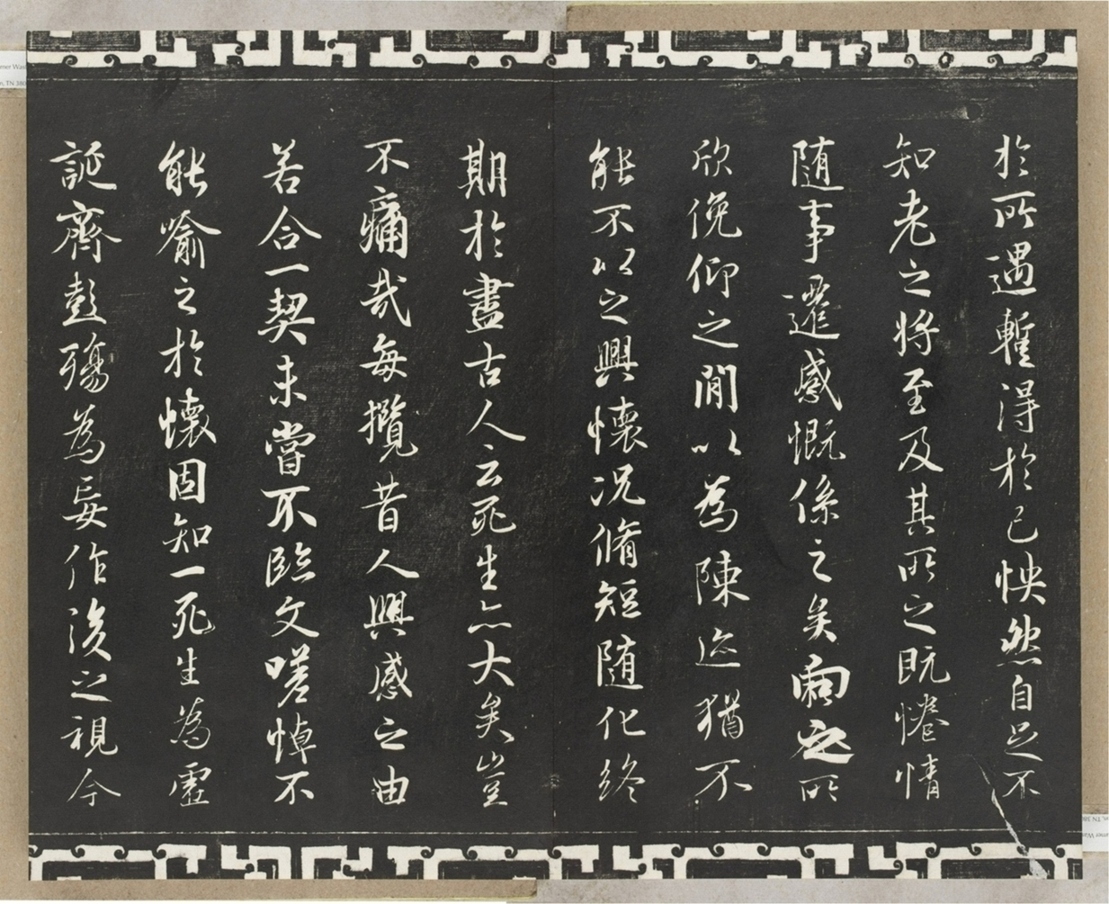 於所遇蹔得於己怏然自足不
知老之將至及其所之既惓情
隨事遷感慨係之矣向之所
欣俛仰之閒以為陳迹猶不
能不以之興懷況脩短隨化終
期於盡古人云死生亦大矣豈
不痛哉每攬昔人興感之由
若合一契未嘗不臨文嗟悼不
能喻之於懷固知一死生為虛
誕齊彭殤為妄作後之視今